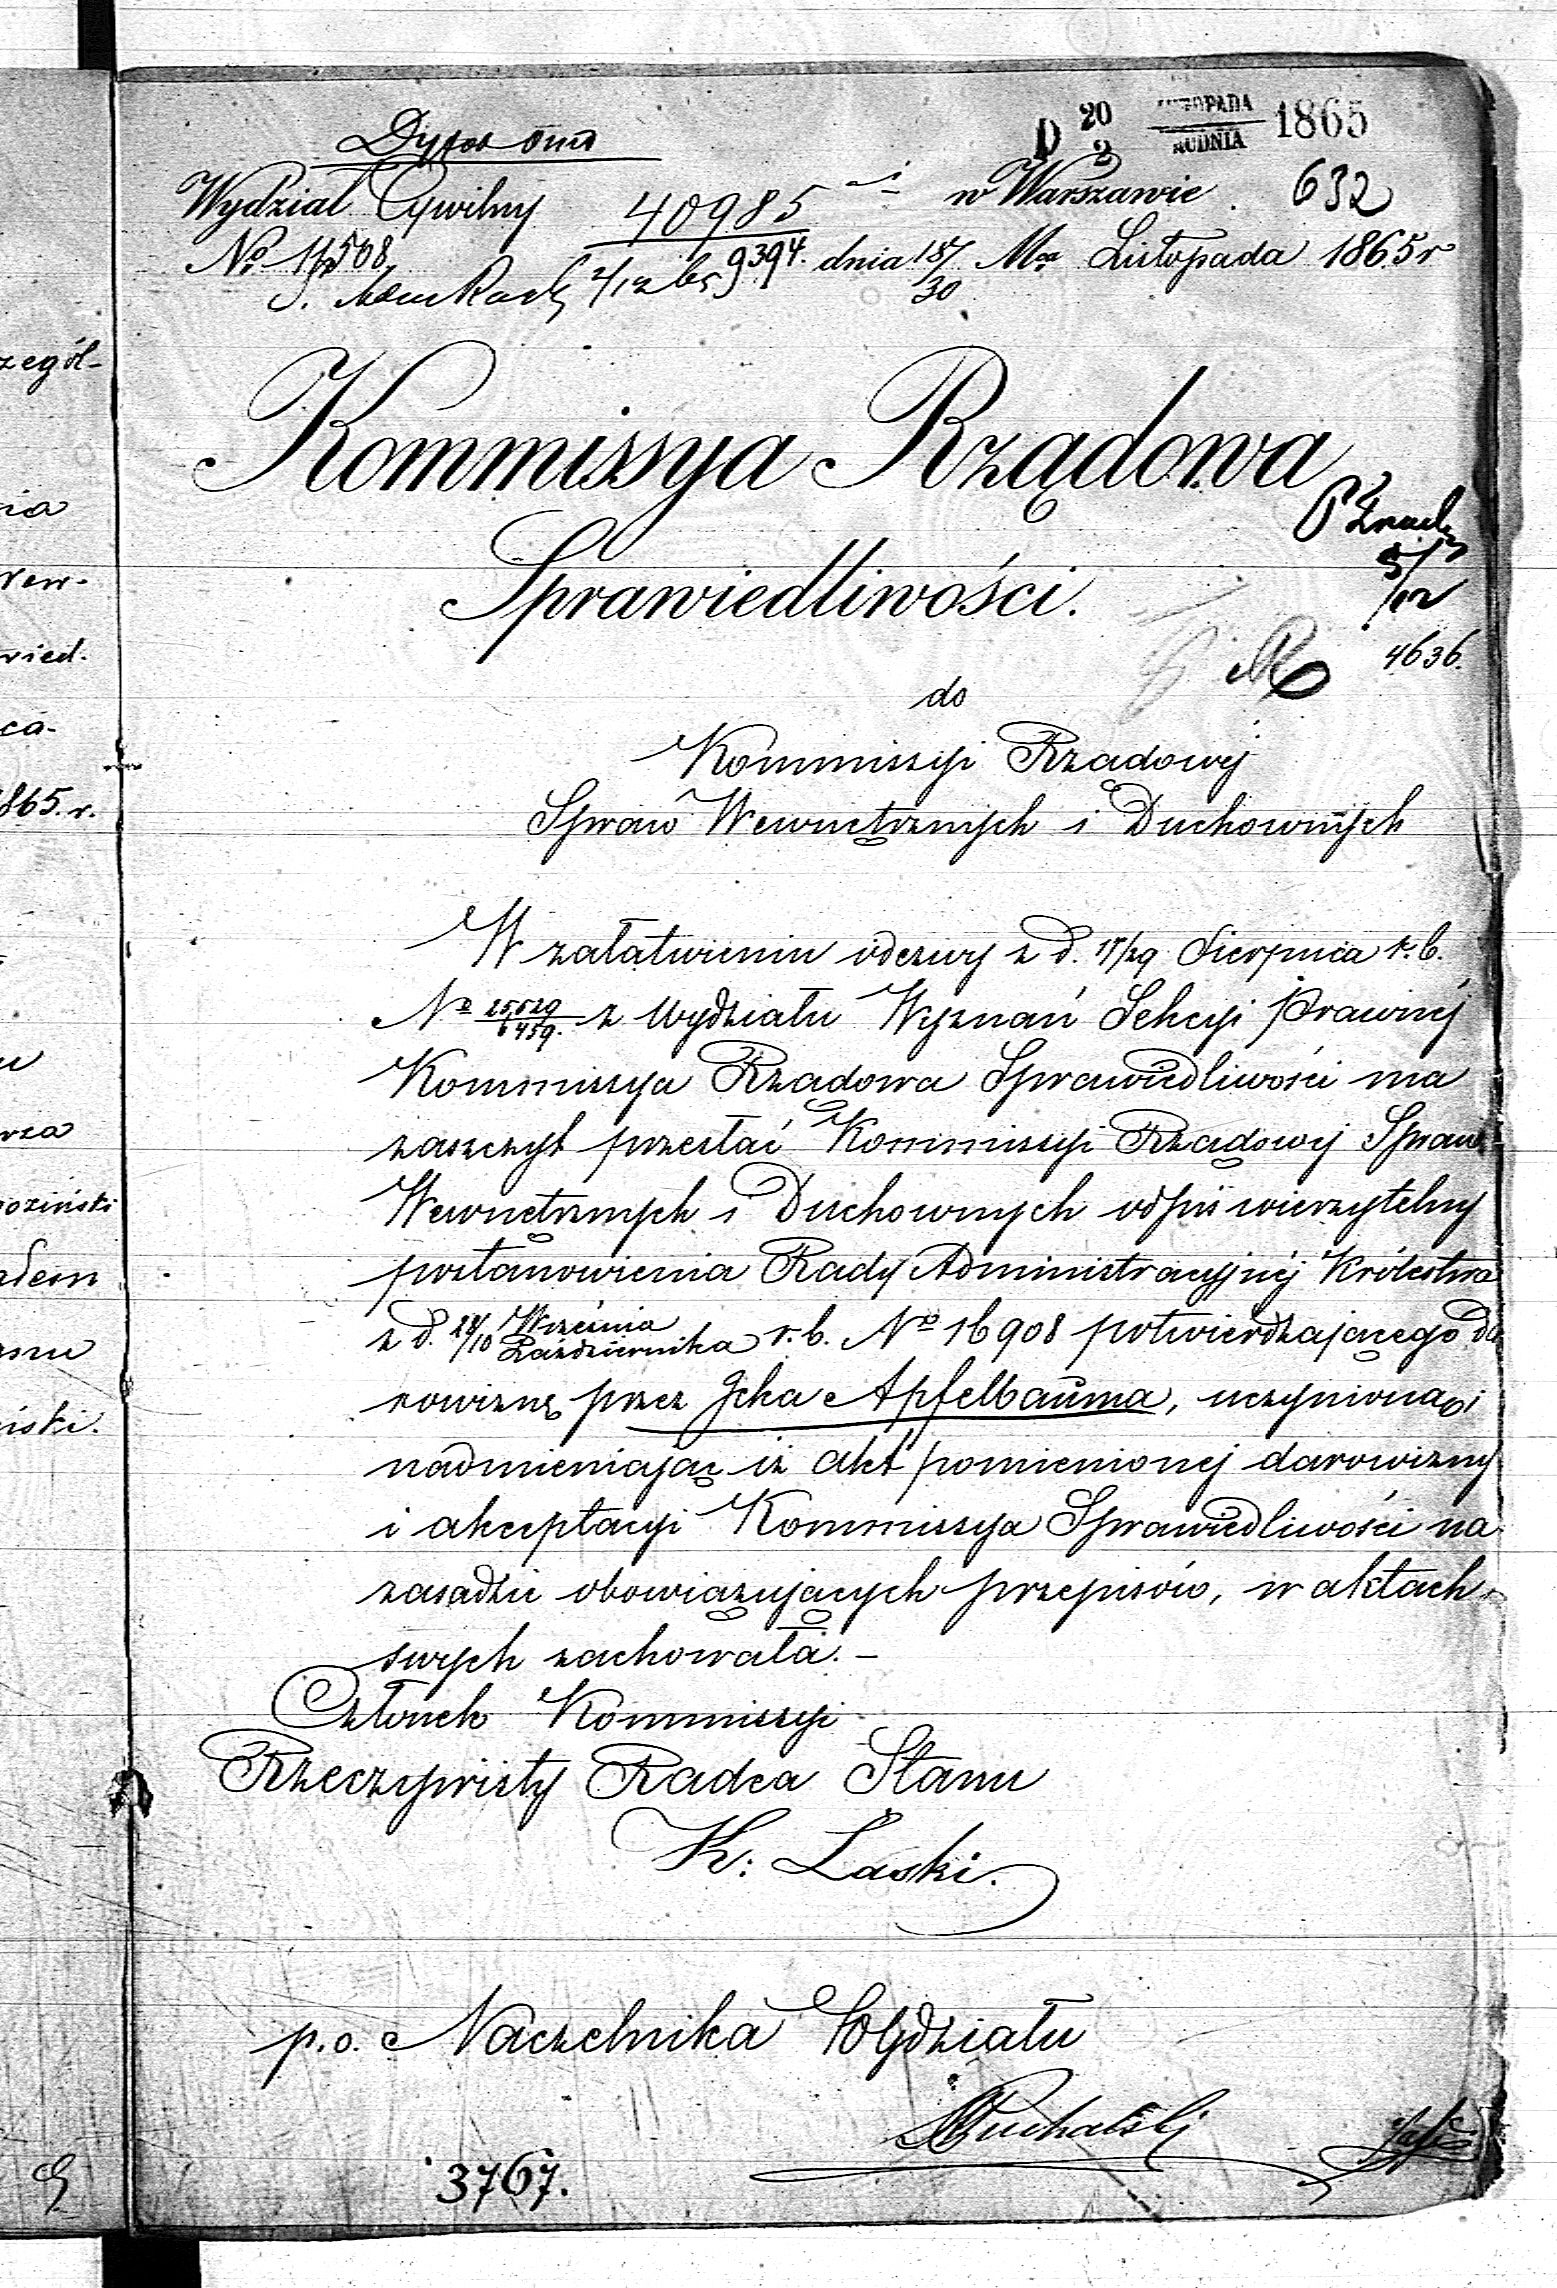 D 20/2 LISTOPADA/GRUDNIA 1865
Wydział Cywilny 40985 w Warszawie. 632
No 14508 9394. dnia 18/30 Mca Listopada 1865 r
Kommissya Rządowa
Sprawiedliwości.
5/12
4636.
do
Kommissyi Rządowéj
Spraw Wewnętrznych i Duchownych
zegól-
W załatwieniu odezwy z d. 17/29 Sierpnia r. b.
No 25,829/6459. z Wydziału Wyznań Sekcyi Prawnéj
Kommissya Rządowa Sprawiedliwości ma
zaszczyt przesłać Kommissyi Rządowéj Spraw
Wewnętrznych i Duchownych odpis wierzytelny
postanowienia Rady Administracyjnéj Królestwa
z d. 28/10 Września/Października r. b. No 16908 potwierdzającego da
rowiznę przez Icka Apfelbauma, uczynioną i
nadmieniając iż akt pomienionej darowizny
i akceptacyi Kommissya Sprawiedliwości na
zasadzie obowiązujących przepisów, w aktach
swych zachowała.-
Członek Kommissyi
Rzeczywisty Radca Stanu
K: Laski.
p.o. Naczelnika Wydziału
Puchalski
3767.